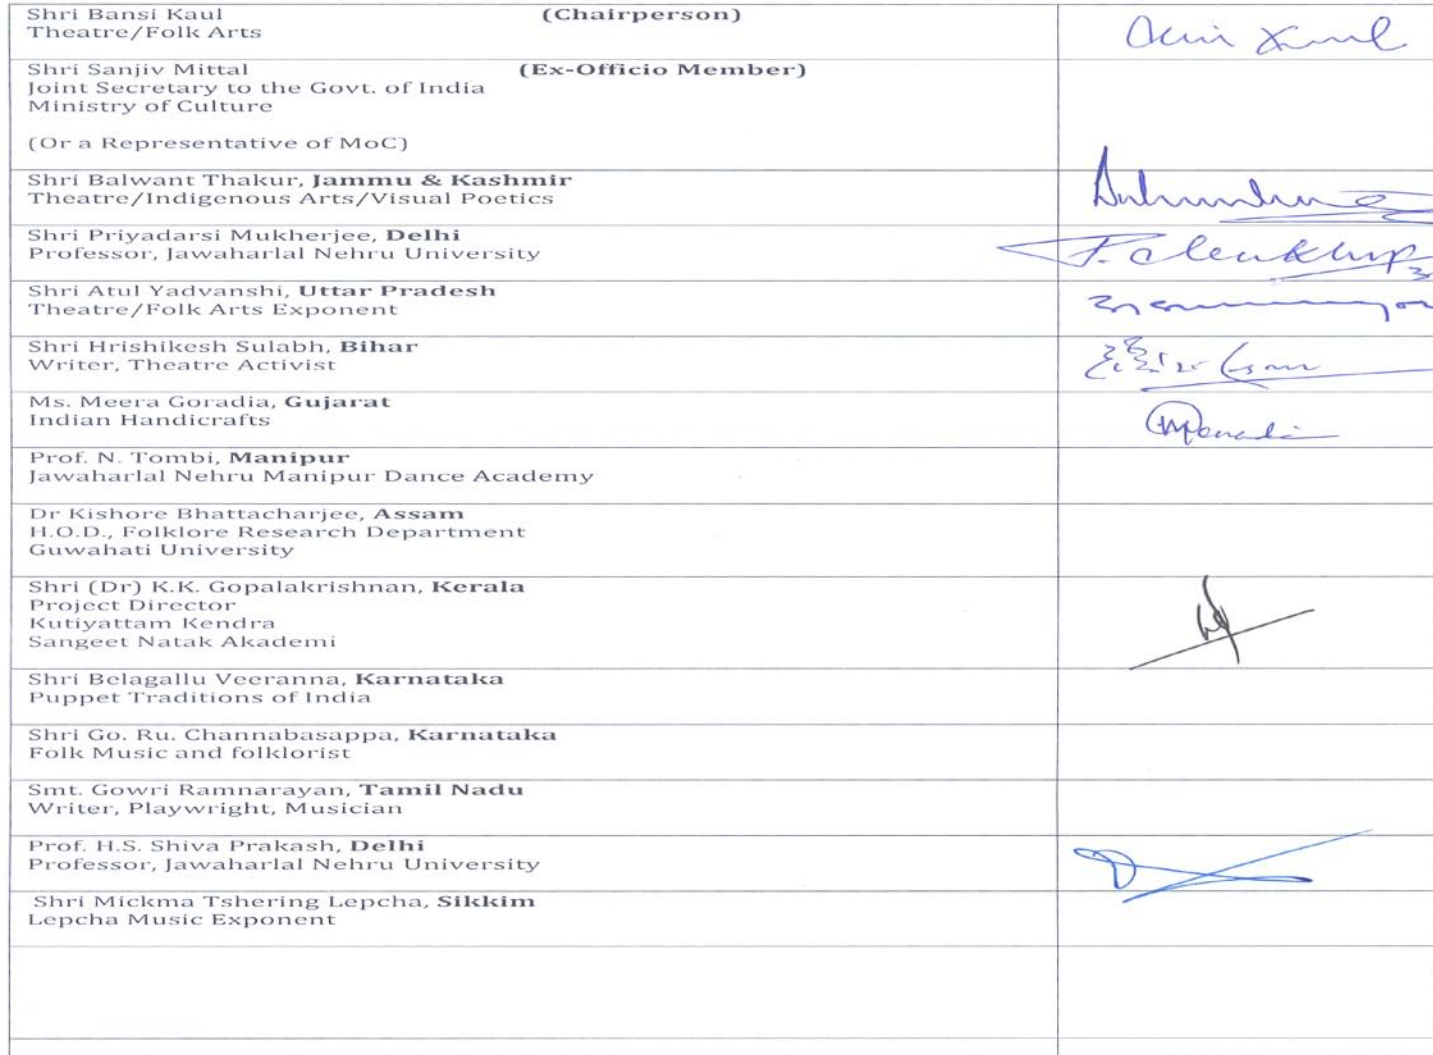 Shri Bansi Kaul (Chairperson)
Theatre/Folk Arts
Shri Sanjiv Mittal (Ex-Officio Member)
Joint Secretary to the Govt. of India
Ministry of Culture
(Or a Representative of MoC)
Shri Balwant Thakur, Jammu & Kashmir
Theatre/Indigenous Arts/Visual Poetics
Shri Priyadarsi Mukherjee, Delhi
Professor, Jawaharlal Nehru University
Shri Atul Yadvanshi, Uttar Pradesh
Theatre/Folk Arts Exponent
Shri Hrishikesh Sulabh, Bihar
Writer, Theatre Activist
Ms. Meera Goradia, Gujarat
Indian Handicrafts
Prof. N. Tombi, Manipur
Jawaharlal Nehru Manipur Dance Academy
Dr Kishore Bhattacharjee, Assam
H.O.D., Folklore Research Department
Guwahati University
Shri (Dr) K.K. Gopalakrishnan, Kerala
Project Director
Kutiyattam Kendra
Sangeet Natak Akademi
Shri Belagallu Veeranna, Karnataka
Puppet Traditions of India
Shri Go. Ru. Channabasappa, Karnataka
Folk Music and folklorist
Smt. Gowri Ramnarayan, Tamil Nadu
Writer, Playwright, Musician
Prof. H.S. Shiva Prakash, Delhi
Professor, Jawaharlal Nehru University
Shri Mickma Tshering Lepcha, Sikkim
Lepcha Music Exponent